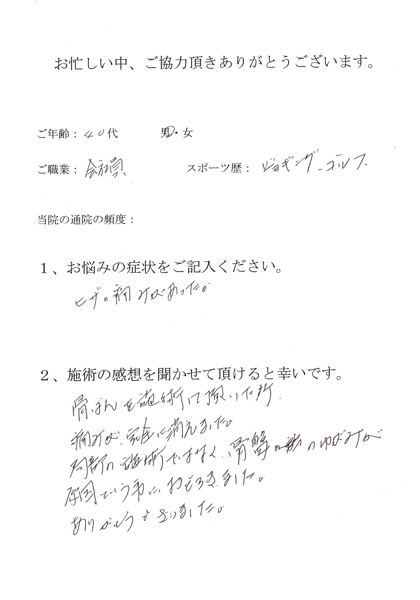 お忙しい中、ご協力頂きありがとうございます。
ご年齢：40代 男・女
ご職業：会社員 スポーツ歴：ジョギング、ゴルフ
当院の通院の頻度：
１、お悩みの症状をご記入ください。
ヒザの痛みがあった。
２、施術の感想を聞かせて頂けると幸いです。
骨ばんを施術して頂いた所
痛みが、完全に消えました。
局部の施術ではなく、骨盤のゆがみが
原因という事に、おどろきました。
ありがとうございました。